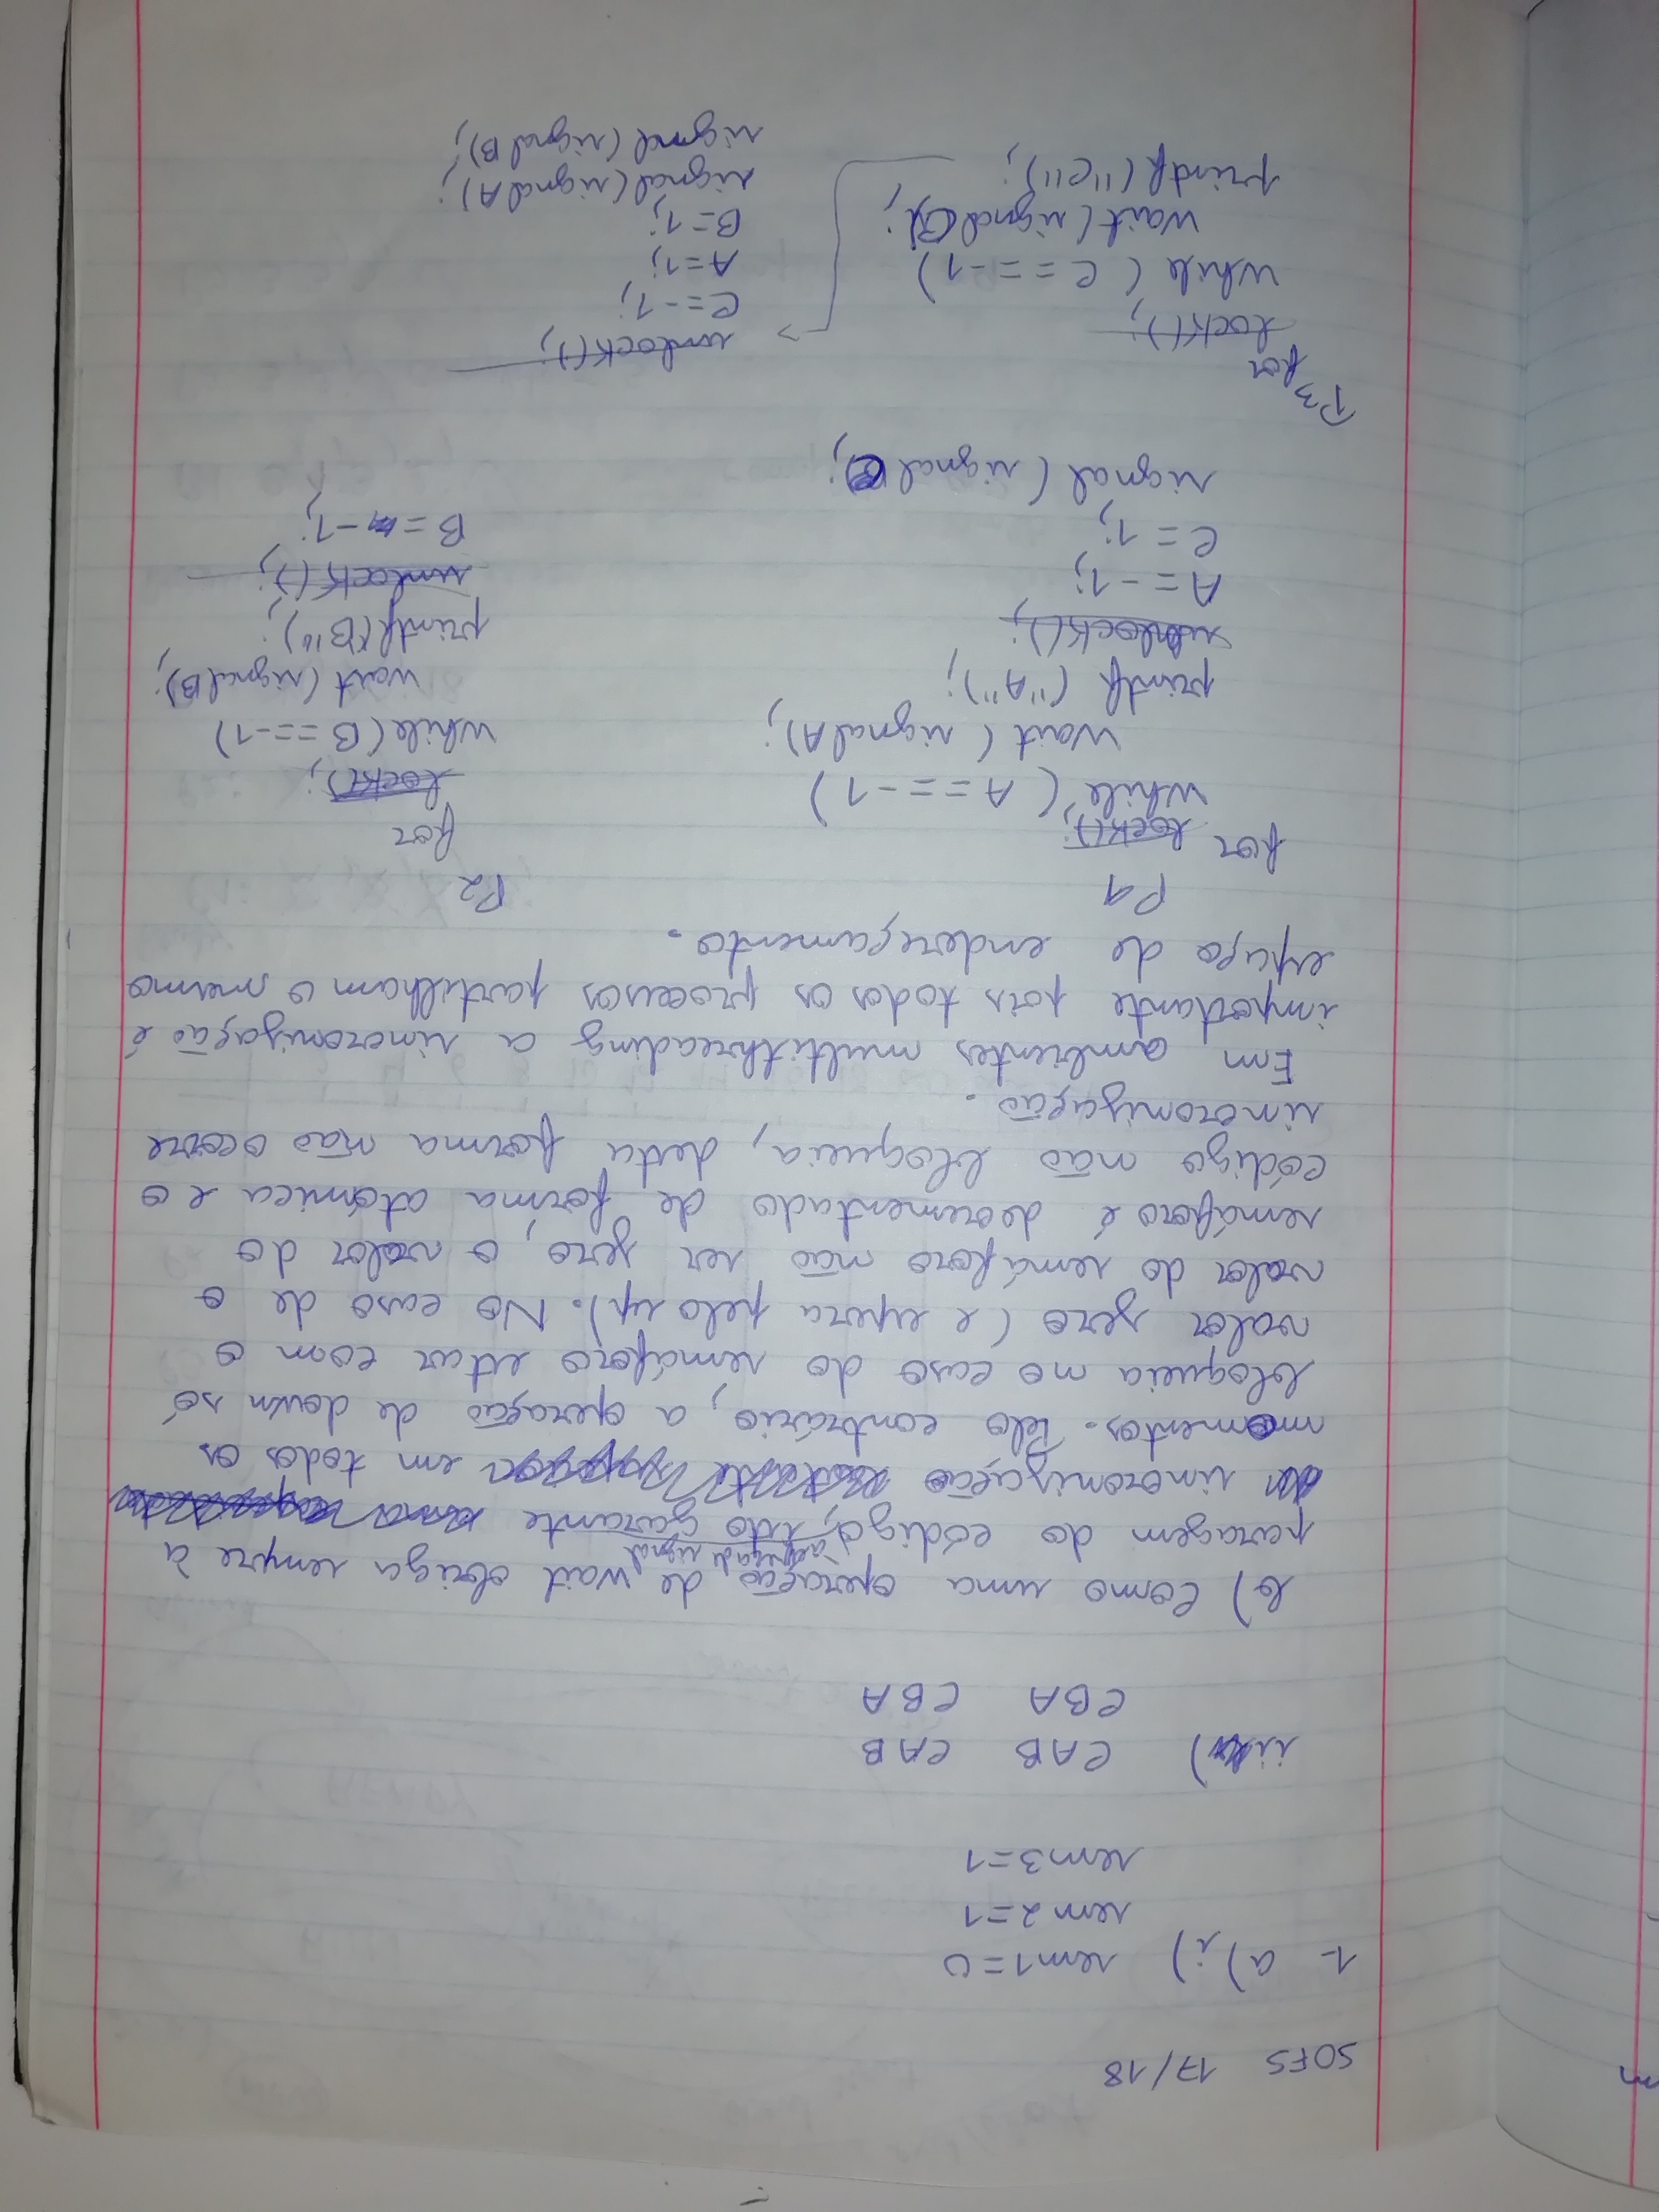 SOFS 17/18
1- a) i) sem1=0
sem2=1
sem3=1
ii) CAB CAB
CBA CBA
b) Como uma operação de wait obriga sempre à
paragem do código, à espera de signal, isto garante
sincronização em todos os
momentos. Pelo contrário, a operação de down só
bloqueia no caso do semáforo estar com o
valor zero (e espera pelo up). No caso de o
valor do semáforo não ser zero, o valor do
semáforo é decrementado de forma atómica e o
código não bloqueia, desta forma não ocorre
sincronização.
Em ambientes multithreading a sincronização é
importante pois todos os processos partilham o mesmo
espaço de endereçamento.
P1
for
lock();
while (A==-1)
wait (signalA);
printf ("A");
unlock();
A=-1;
C=1;
signal (signalC);
P2
for
lock();
while(B==-1)
wait (signalB);
printf("B");
unlock();
B=-1;
P3
for
lock();
while (C==-1)
wait(signalC);
printf("C");
unlock();
C=-1;
A=1;
B=1;
signal(signalA);
signal(signalB);